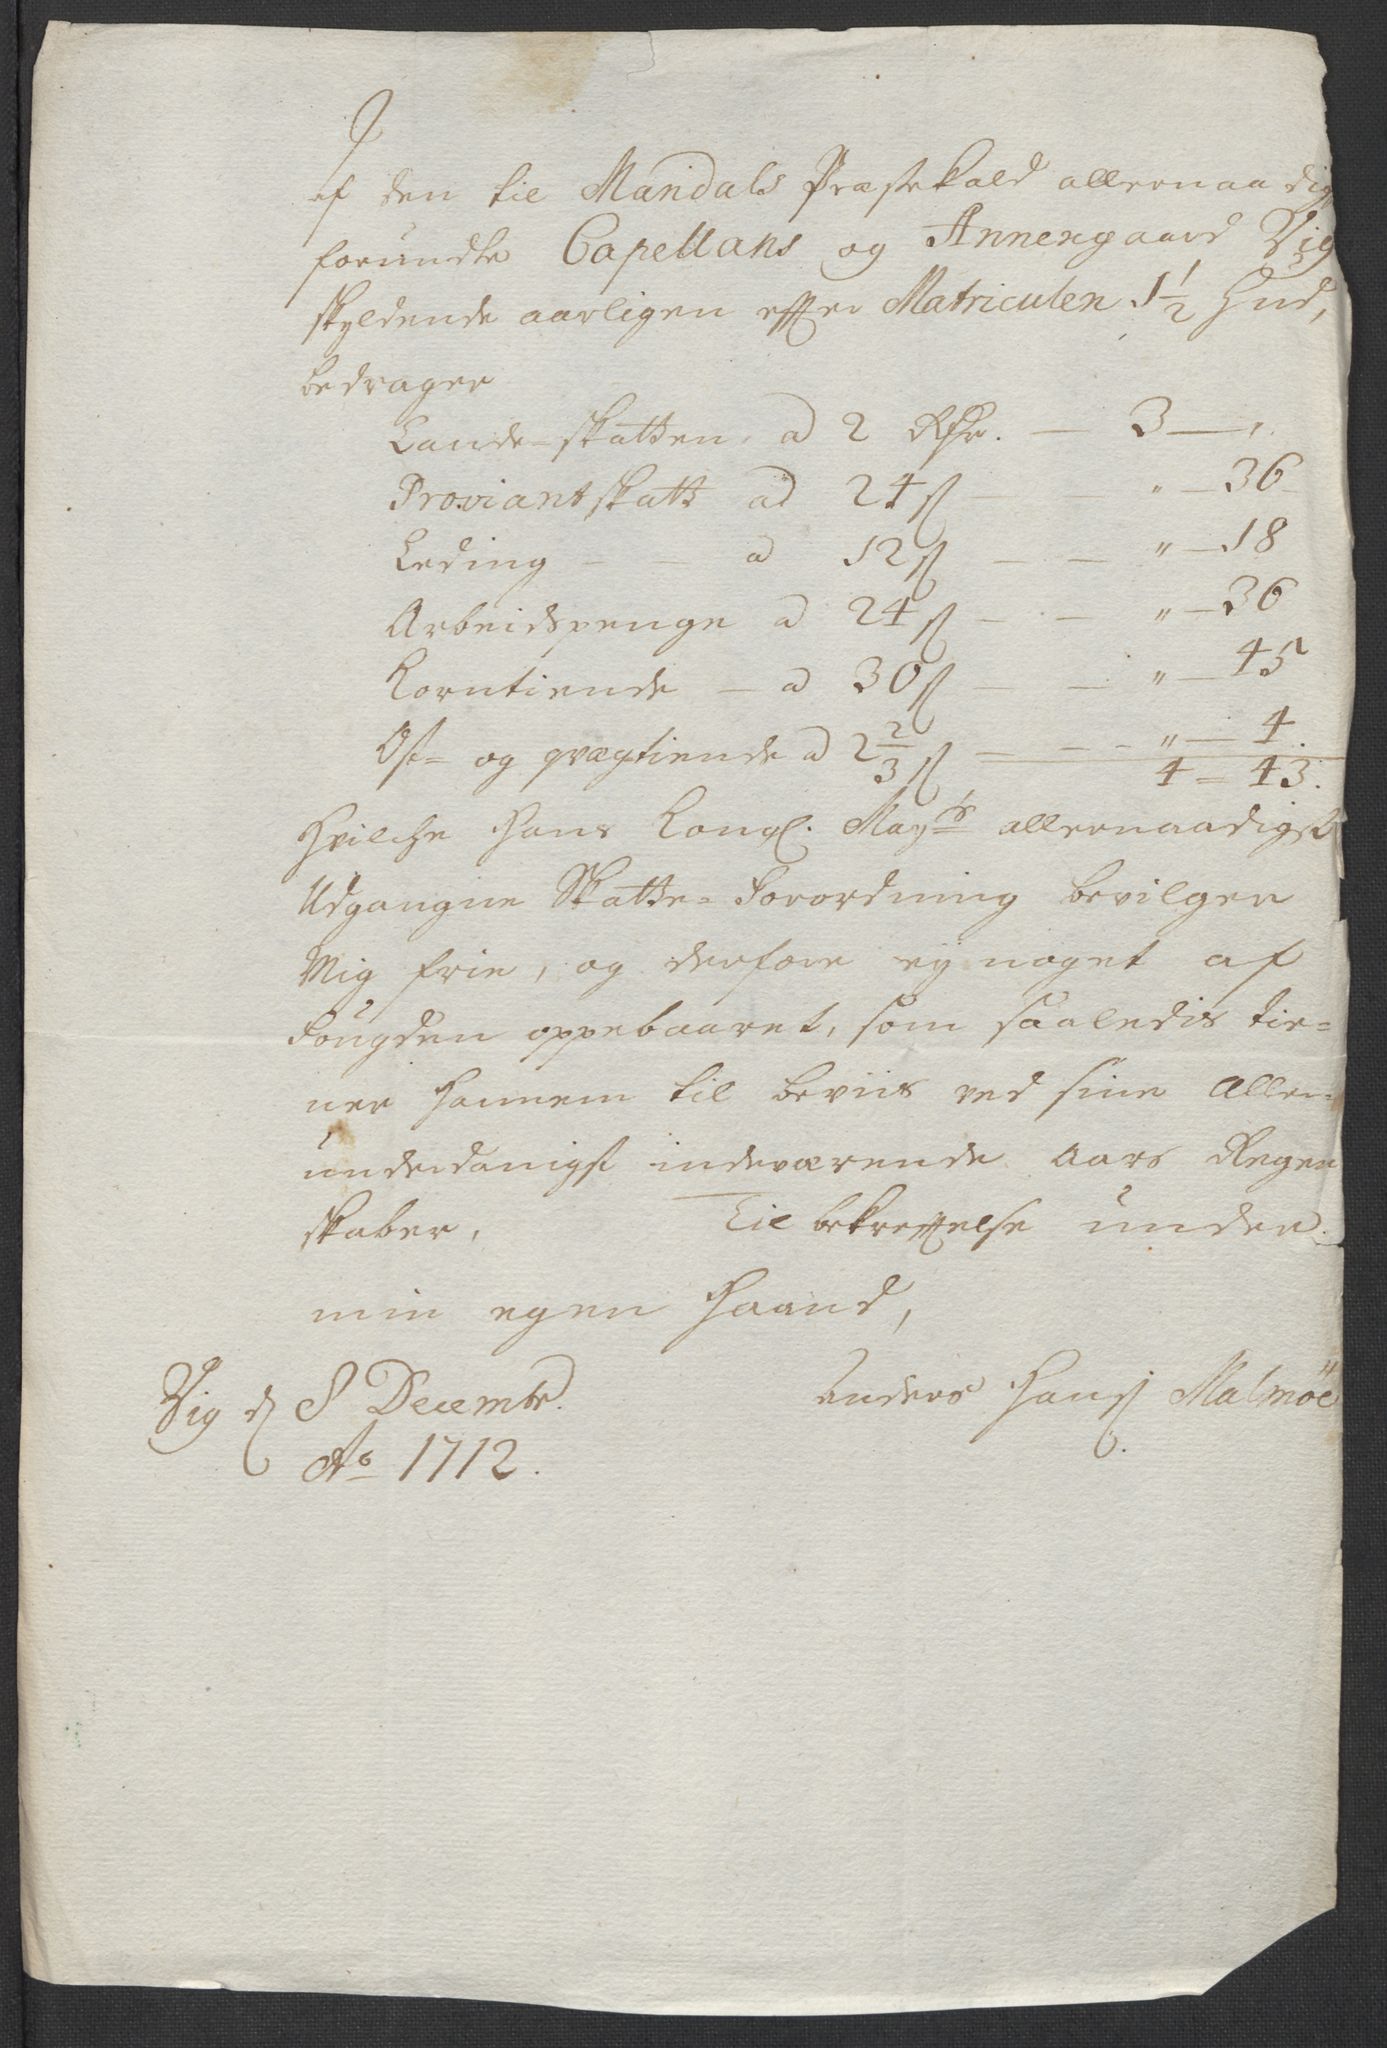 Af den til Mandals Præstekald allernaadig
forundte Capellans og Annexgaard Vig
skyldende aarligen effter Matriculen 1 1/2 Hud,
bedrager
Lande-skatten, a 2 Rdr. — 3 — „
Proviantskatt ad 24 ß — „ — 36
Leding — a 12 ß — — „ — 18
Arbeidspenge a 24 ß — — „ — 36
Korntiende — a 30 ß — — „ — 45
Ost- og qvægtiende a 2 2/3 ß — — „ — 4.
4 = 43.
Hvilche Hans Kongl. Mayts allernaadigst
Udgangne Skatte-Forordning bevilger
Mig frie, og derfore ey noget af
Fougden oppebaaret, som saaledis tie-
ner hannem til beviis ved sine Aller-
underdanigst indeværende Aars Regen
skaber, Til bekrefftelse under
min egen Haand,
Vig d 8 Decembr. Anders Hanß Malmöe
Ao 1712.